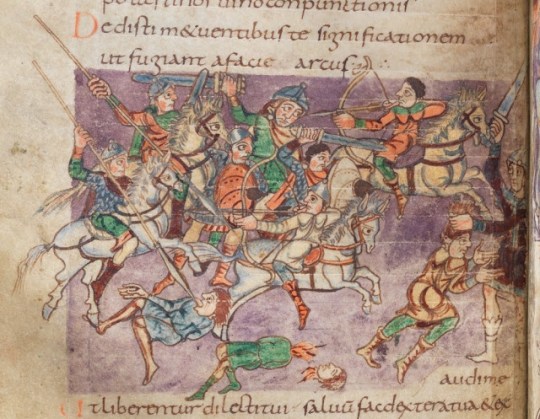 nos uino conpunctionis
Dedisti m&uentibus te significationem
ut fugiant a facie arcus;
audi me
Ut liberentur dilecti tui · saluū fac dextera tua & ex